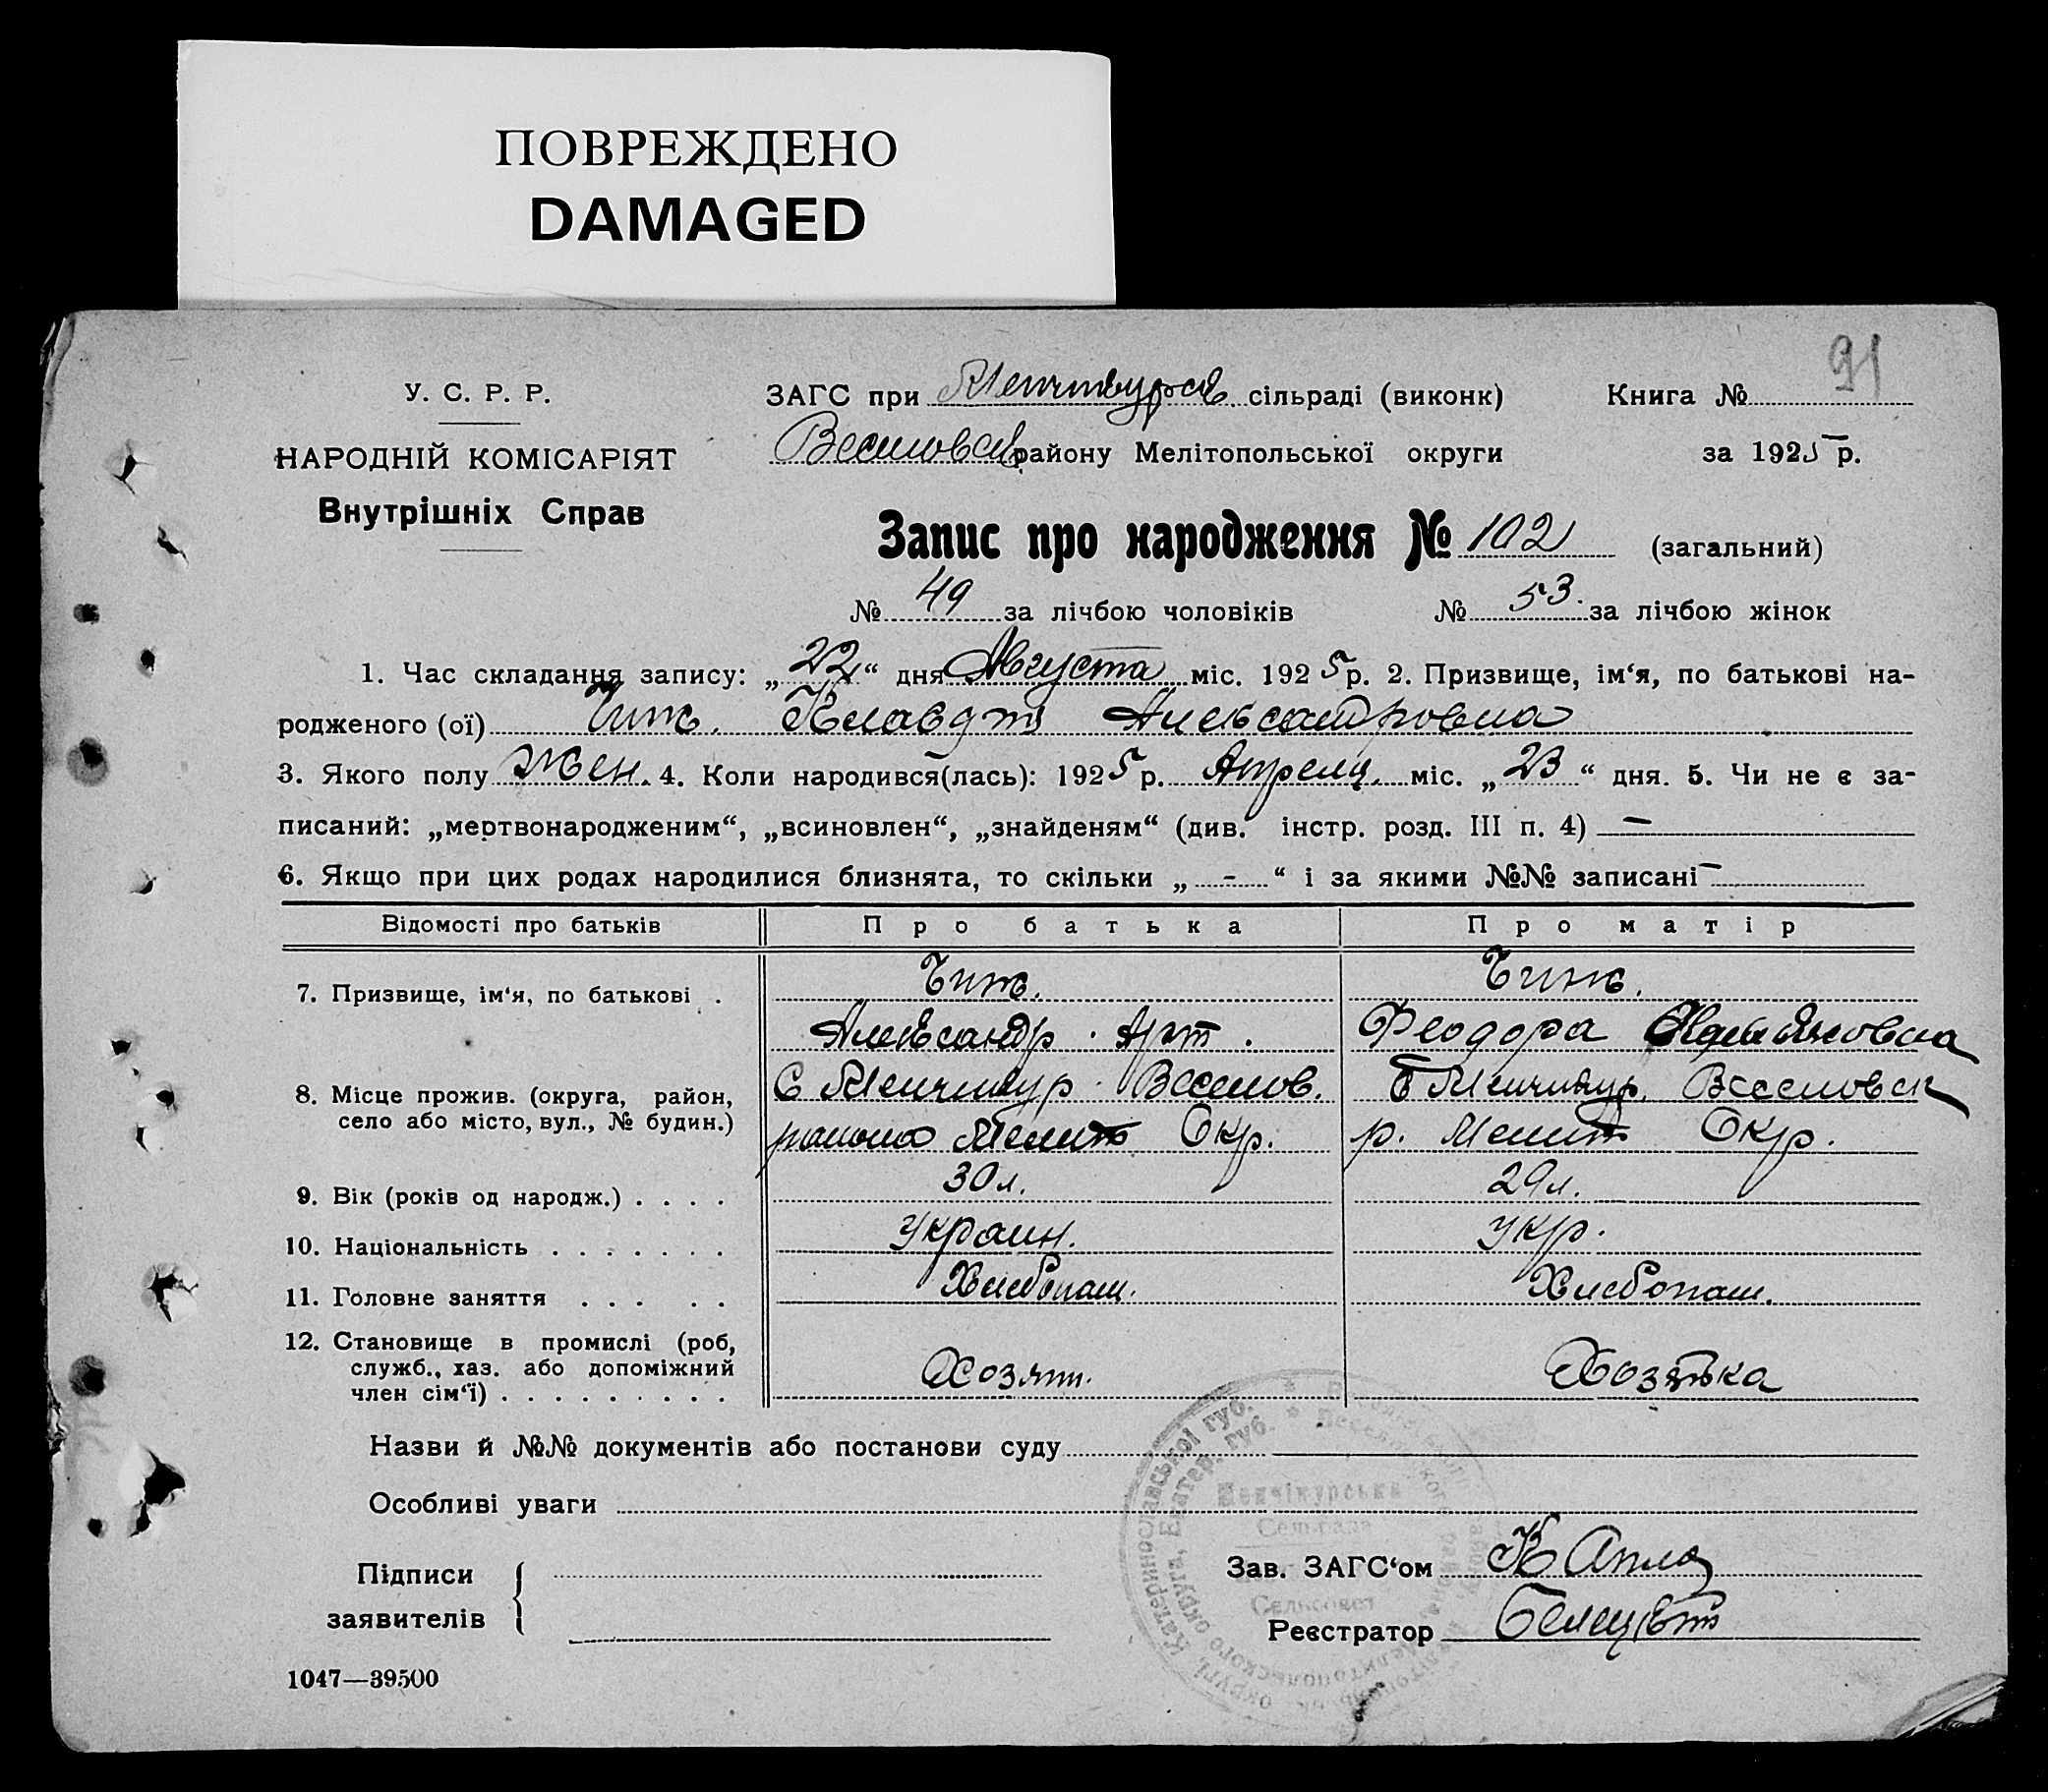 ПОВРЕЖДЕНО
DAMAGED
91
У. С. Р. Р.
НАРОДНІЙ КОМІСАРІЯТ
Внутрішніх Справ
ЗАГС при Менчикурск. сільраді (виконк)
Веселовск району Мелітопольської округи
Книга №
за 1925 р.
Запис про народження № 102 (загальний)
№ 49 за лічбою чоловіків № 53. за лічбою жінок
1. Час складання запису: „22“ дня Августа міс. 1925 р. 2. Призвище, ім‘я, по батькові на-
родженого (ої) Чиж. Клавдия Александровна
3. Якого полу Жен. 4. Коли народився(лась): 1925 р. Апреля міс. „23“ дня. 5. Чи не є за-
писаний: „мертвонародженим“, „всиновлен“, „знайденям“ (див. інстр. розд. III п. 4) —
6. Якщо при цих родах народилися близнята, то скільки „ - “ і за якими №№ записані —
Відомості про батьків Про батька Про матір
7. Призвище, ім‘я, по батькові . Чиж. Чиж.
Александр. Арт. Феодора
8. Місце прожив. (округа, район, С Менчикур. Веселов. Менчикур. Веселовск
село або місто, вул., № будин.) района Мелит Окр. р. Мелит Окр.
9. Вік (років од народж.) . . . . 30 л. 29 л.
10. Національність . . . . . . . Украин. Укр.
11. Головне заняття . . . . . Хлебопаш. Хлебопаш.
12. Становище в промислі (роб,
служб., хаз. або допоміжний
член сім‘ї) . . . . . . . . . Хозяин. Хозяйка
Назви й №№ документів або постанови суду
Особливі уваги
Менчікурська
Сельрада
Сельсовет
Підписи
заявителів
Зав. ЗАГС‘ом
Реєстратор
1047—39500